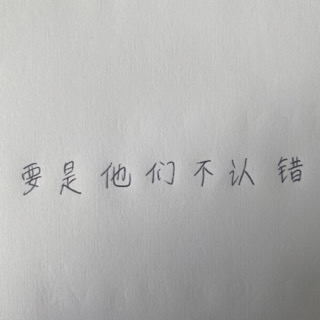 要是他们不认错